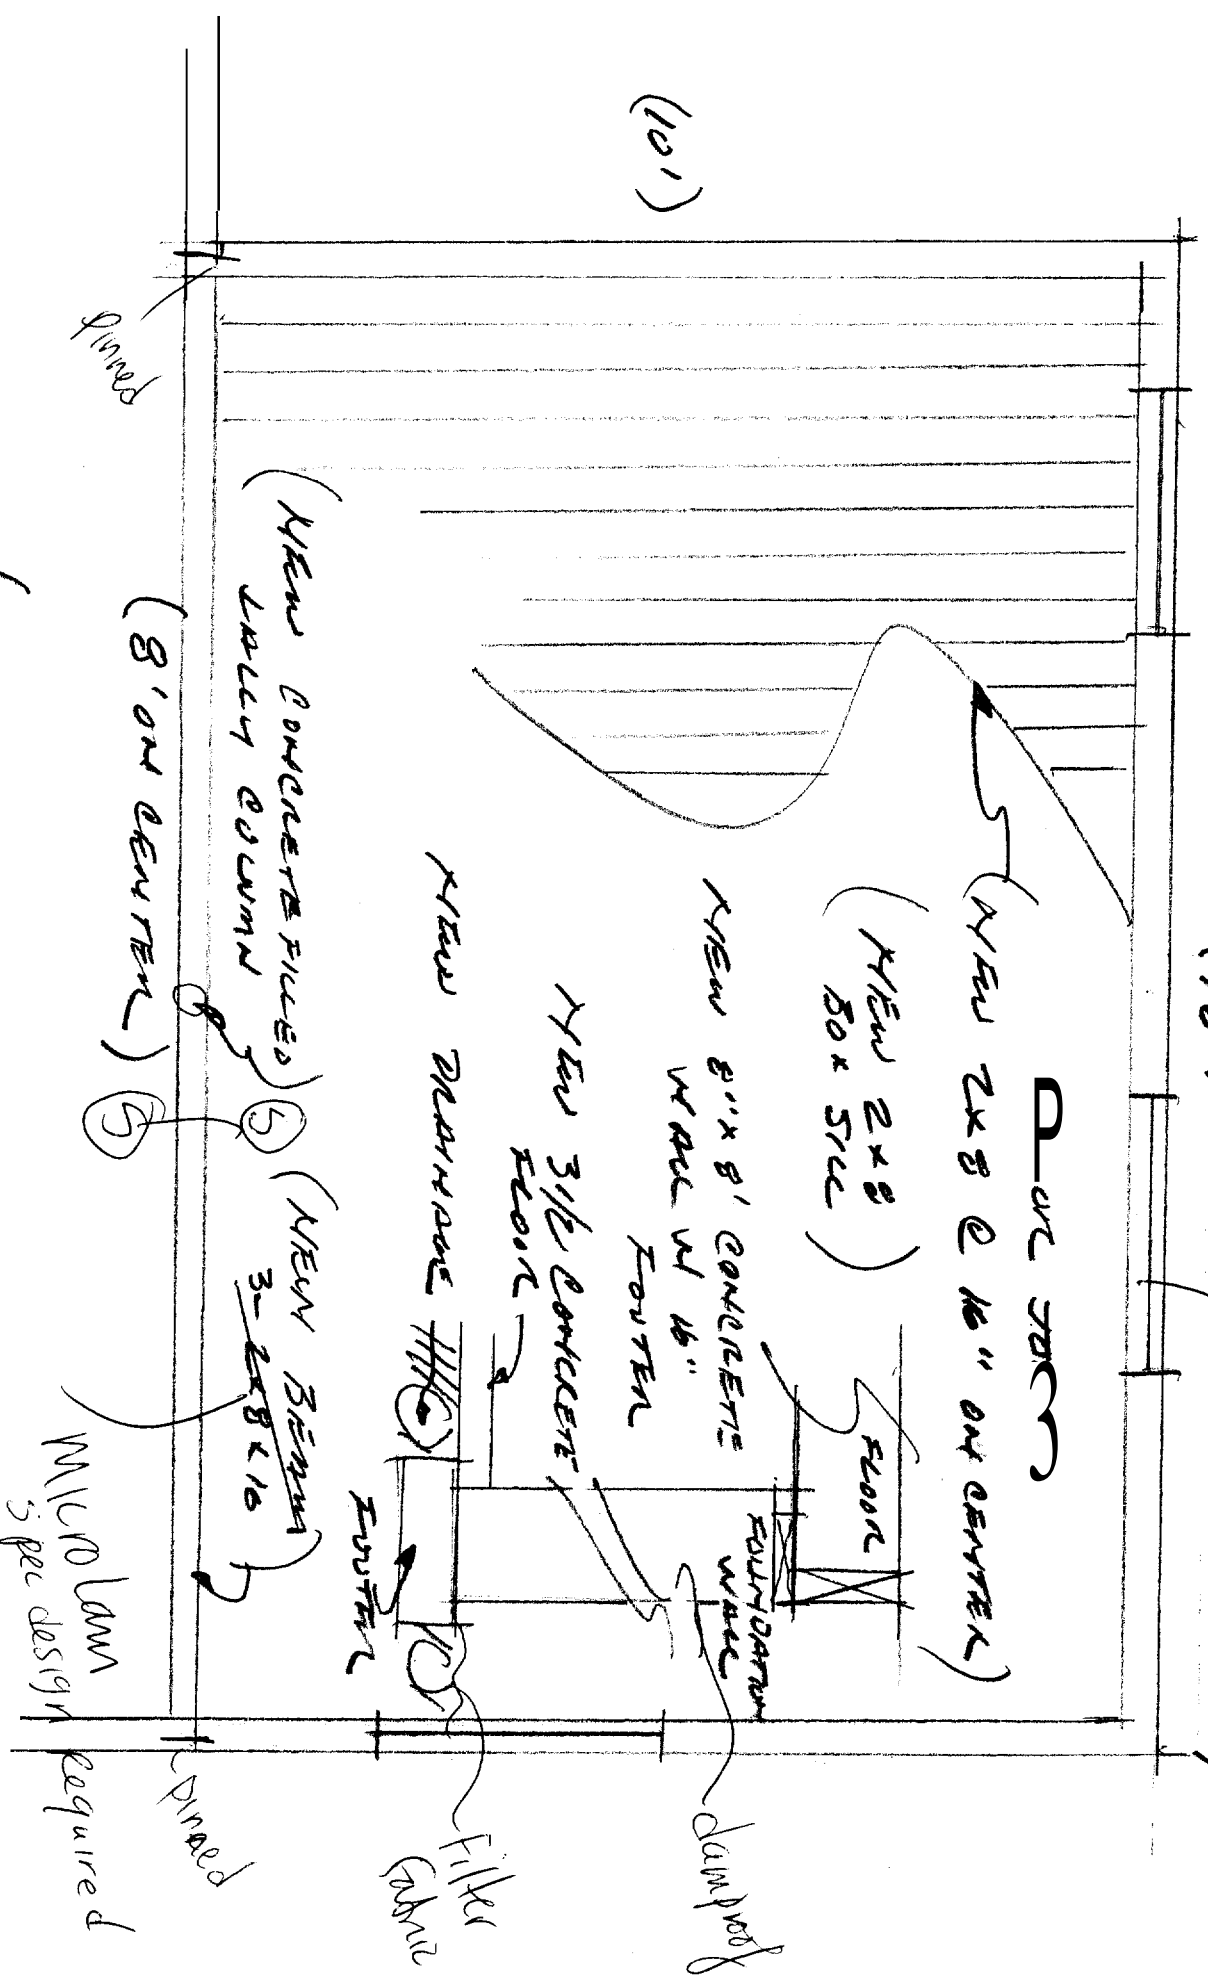 (10')
pinned
(NEW 2x8 @ 16" ON CENTER)
(NEW 2x8
BOX SILL)
FLOOR
NEW 8"x8' CONCRETE
WALL W/ 16"
FOOTER
FOUNDATION
WALL
NEW 3 1/2 CONCRETE
FLOOR
NEW DRAINAGE
FOOTER
(NEW CONCRETE FILLED)
LALLY COLUMN
(8' ON CENTER)
5
5
(NEW BEAM)
3-2x8x10
MicroLam
Spec design required
pinned
Filter
Fabric
dampproof